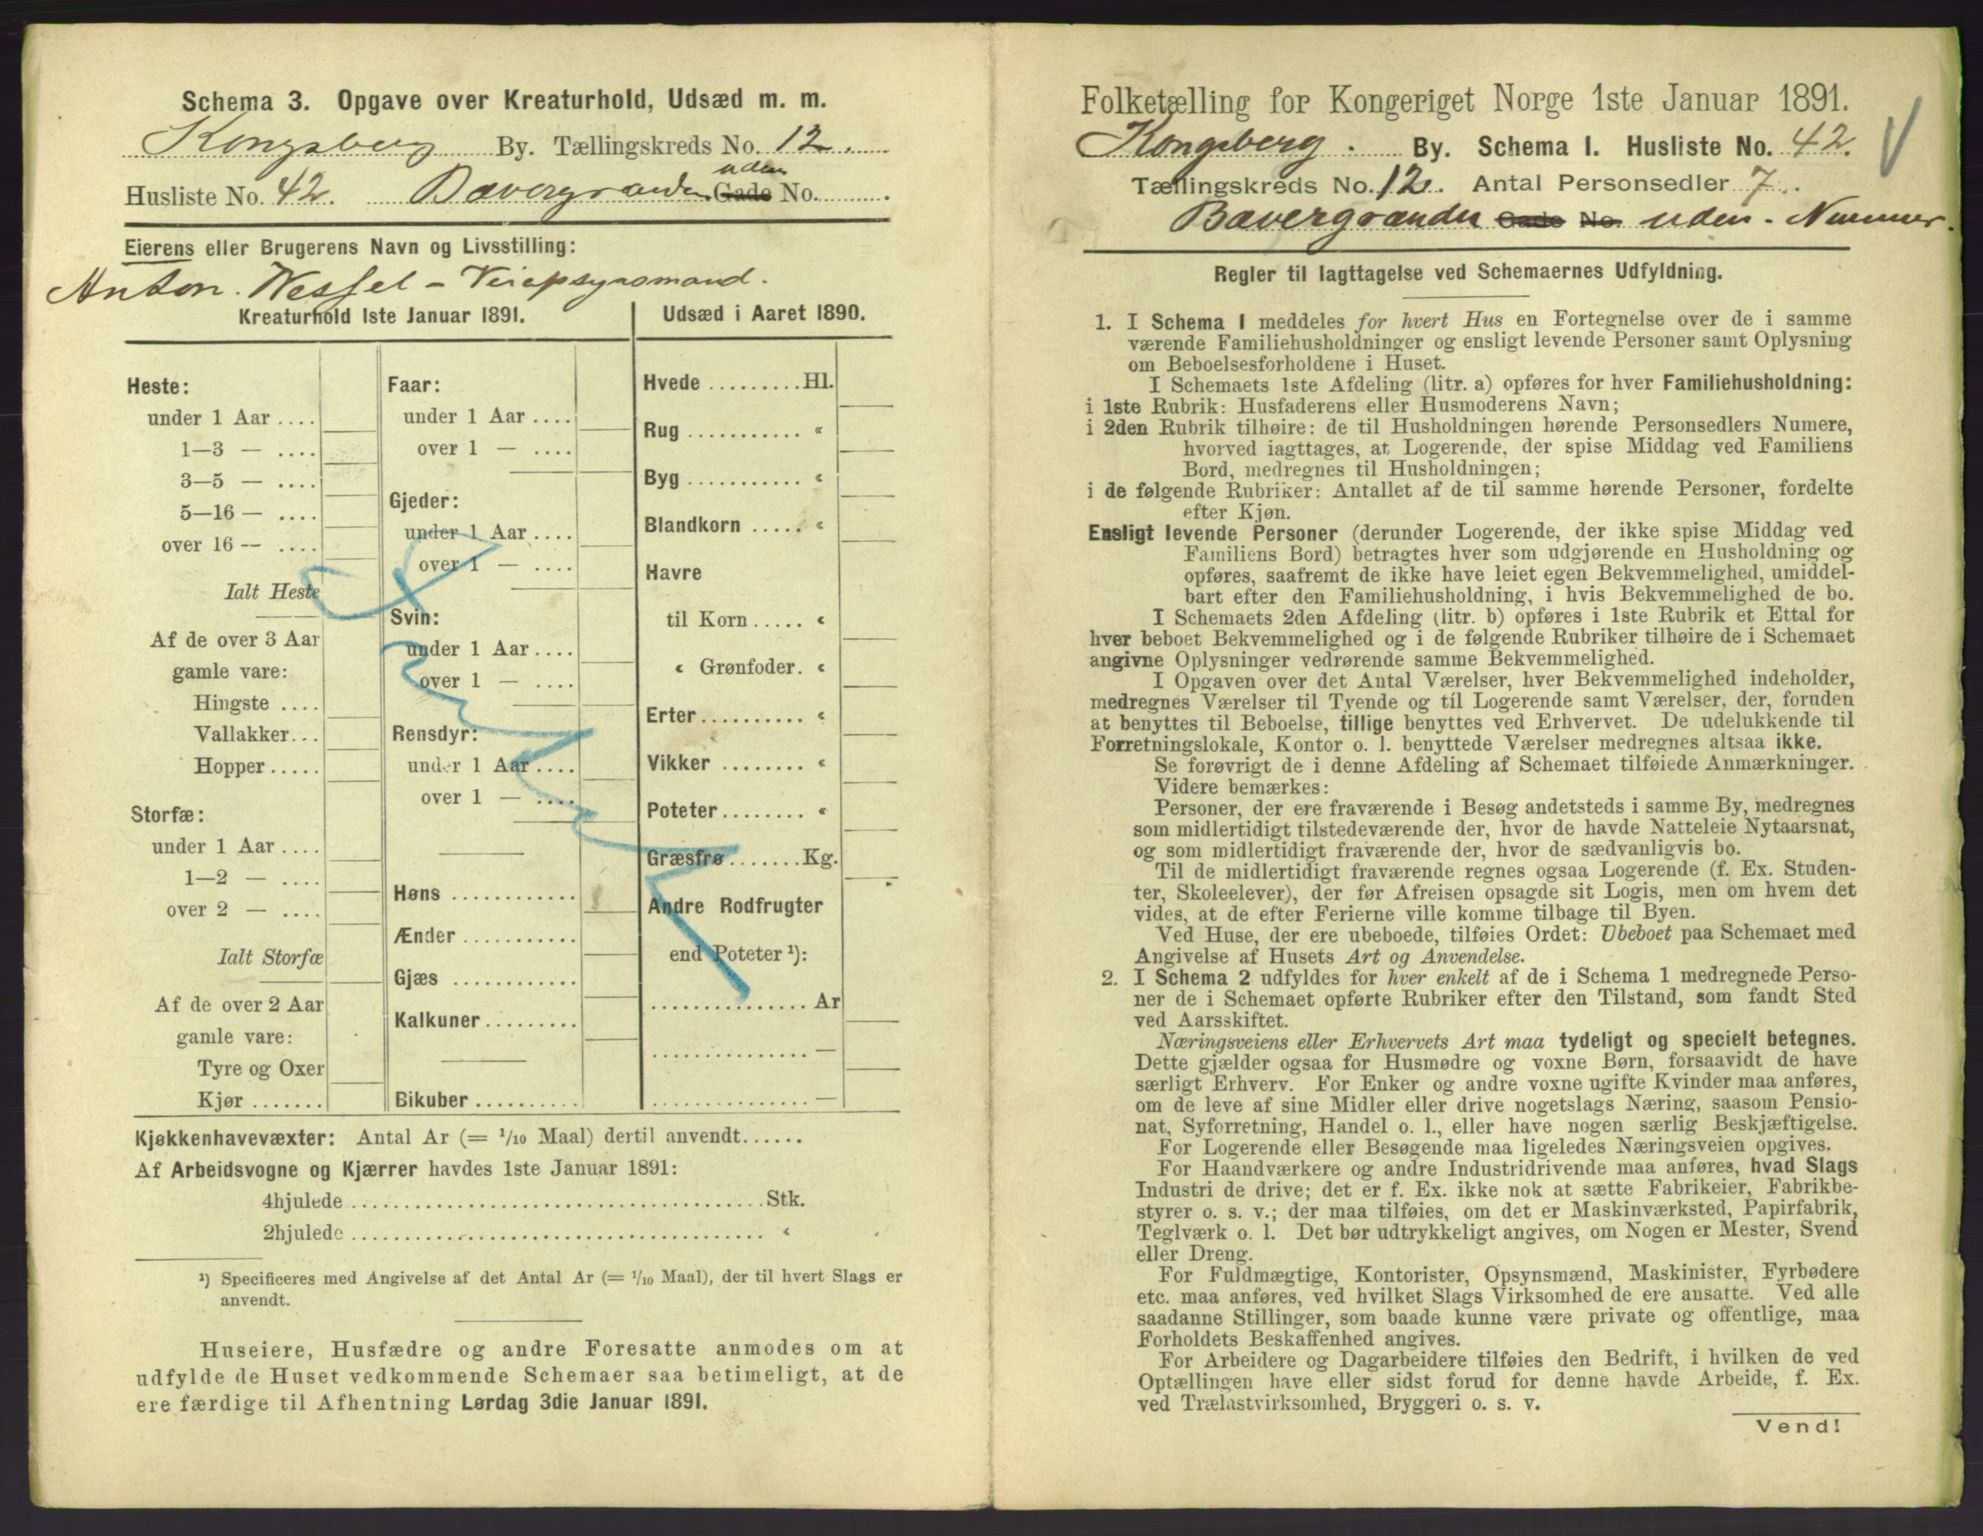 Schema 3. Opgave over Kreaturhold, Udsæd m. m.
Kongsberg By. Tællingskreds No. 12.
uden
Husliste No. 42. Bævergrænden Gade No.
Eierens eller Brugerens Navn og Livsstilling:
Anton Wessel – Veiopsynsmand.
Kreaturhold 1ste Januar 1891.
Heste:
under 1 Aar ....
1—3 — ....
3—5 — ....
5—16 — ....
over 16 — ....
Ialt Heste
Af de over 3 Aar
gamle vare:
Hingste ....
Vallakker...
Hopper.....
Storfæ:
under 1 Aar ....
1—2 — ....
over 2 — ....
Ialt Storfæ
Af de over 2 Aar
gamle vare:
Tyre og Oxer
Kjør .......
Faar:
under 1 Aar ....
over 1 — ....
Gjeder:
under 1 Aar ....
over 1 — ....
Svin:
under 1 Aar ....
over 1 — ....
Rensdyr:
under 1 Aar ....
over 1 — ....
Høns ............
Ænder ...........
Gjæs ............
Kalkuner.........
Bikuber..........
Udsæd i Aaret 1890.
Hvede .........Hl.
Rug ........... «
Byg ........... «
Blandkorn ..... «
Havre
til Korn ..... «
« Grønfoder. «
Erter.......... «
Vikker ........ «
Poteter........ «
Græsfrø .......Kg.
Andre Rodfrugter
end Poteter ¹):
............... Ar
............... —
............... —
Kjøkkenhavevæxter: Antal Ar (= 1/10 Maal) dertil anvendt......
Af Arbeidsvogne og Kjærrer havdes 1ste Januar 1891:
4hjulede ......................................Stk.
2hjulede ...................................... «
¹) Specificeres med Angivelse af det Antal Ar (= 1/10 Maal), der til hvert Slags er
anvendt.
Huseiere, Husfædre og andre Foresatte anmodes om at
udfylde de Huset vedkommende Schemaer saa betimeligt, at de
ere færdige til Afhentning Lørdag 3die Januar 1891.
Folketælling for Kongeriget Norge 1ste Januar 1891.
Kongsberg. By. Schema I. Husliste No. 42.
Tællingskreds No. 12. Antal Personsedler 7.
Bævergrænden Gade No. uden Nummer.
Regler til Iagttagelse ved Schemaernes Udfyldning.
1. I Schema 1 meddeles for hvert Hus en Fortegnelse over de i samme
værende Familiehusholdninger og ensligt levende Personer samt Oplysning
om Beboelsesforholdene i Huset.
I Schemaets 1ste Afdeling (litr. a) opføres for hver Familiehusholdning:
i 1ste Rubrik: Husfaderens eller Husmoderens Navn;
i 2den Rubrik tilhøire: de til Husholdningen hørende Personsedlers Numere,
hvorved iagttages, at Logerende, der spise Middag ved Familiens
Bord, medregnes til Husholdningen;
i de følgende Rubriker: Antallet af de til samme hørende Personer, fordelte
efter Kjøn.
Ensligt levende Personer (derunder Logerende, der ikke spise Middag ved
Familiens Bord) betragtes hver som udgjørende en Husholdning og
opføres, saafremt de ikke have leiet egen Bekvemmelighed, umiddel-
bart efter den Familiehusholdning, i hvis Bekvemmelighed de bo.
I Schemaets 2den Afdeling (litr. b) opføres i 1ste Rubrik et Ettal for
hver beboet Bekvemmelighed og i de følgende Rubriker tilhøire de i Schemaet
angivne Oplysninger vedrørende samme Bekvemmelighed.
I Opgaven over det Antal Værelser, hver Bekvemmelighed indeholder,
medregnes Værelser til Tyende og til Logerende samt Værelser, der, foruden
at benyttes til Beboelse, tillige benyttes ved Erhvervet. De udelukkende til
Forretningslokale, Kontor o. l. benyttede Værelser medregnes altsaa ikke.
Se forøvrigt de i denne Afdeling af Schemaet tilføiede Anmærkninger.
Videre bemærkes:
Personer, der ere fraværende i Besøg andetsteds i samme By, medregnes
som midlertidigt tilstedeværende der, hvor de havde Natteleie Nytaarsnat,
og som midlertidigt fraværende der, hvor de sædvanligvis bo.
Til de midlertidigt fraværende regnes ogsaa Logerende (f. Ex. Studen-
ter, Skoleelever), der før Afreisen opsagde sit Logis, men om hvem det
vides, at de efter Ferierne ville komme tilbage til Byen.
Ved Huse, der ere ubeboede, tilføies Ordet: Ubeboet paa Schemaet med
Angivelse af Husets Art og Anvendelse.
2. I Schema 2 udfyldes for hver enkelt af de i Schema 1 medregnede Perso-
ner de i Schemaet opførte Rubriker efter den Tilstand, som fandt Sted
ved Aarsskiftet.
Næringsveiens eller Erhvervets Art maa tydeligt og specielt betegnes.
Dette gjælder ogsaa for Husmødre og voxne Børn, forsaavidt de have
særligt Erhverv. For Enker og andre voxne ugifte Kvinder maa anføres,
om de leve af sine Midler eller drive nogetslags Næring, saasom Pensio-
nat, Syforretning, Handel o. l., eller have nogen særlig Beskjæftigelse.
For Logerende eller Besøgende maa ligeledes Næringsveien opgives.
For Haandværkere og andre Industridrivende maa anføres, hvad Slags
Industri de drive; det er f. Ex. ikke nok at sætte Fabrikeier, Fabrikbe-
styrer o. s. v.; der maa tilføies, om det er Maskinværksted, Papirfabrik,
Teglværk o. l. Det bør udtrykkeligt angives, om Nogen er Mester, Svend
eller Dreng.
For Fuldmægtige, Kontorister, Opsynsmænd, Maskinister, Fyrbødere
etc. maa anføres, ved hvilket Slags Virksomhed de ere ansatte. Ved alle
saadanne Stillinger, som baade kunne være private og offentlige, maa
Forholdets Beskaffenhed angives.
For Arbeidere og Dagarbeidere tilføies den Bedrift, i hvilken de ved
Optællingen have eller sidst forud for denne havde Arbeide, f. Ex.
ved Trælastvirksomhed, Bryggeri o. s. v.
Vend!